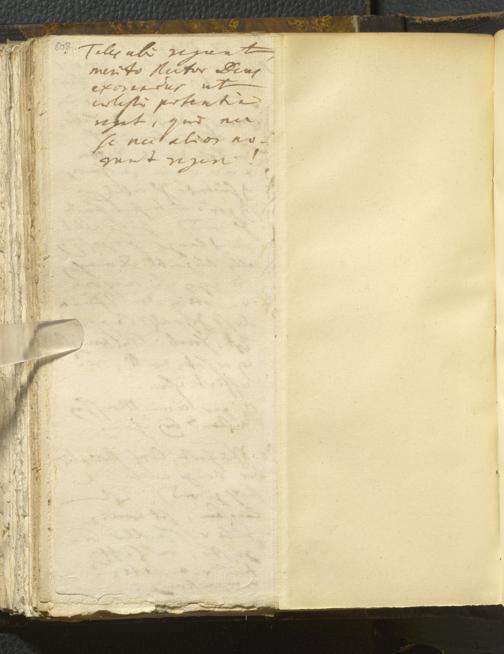 608.
Tales ubi regnent,
merito Rector Deus
exorandus ut
coelesti potentia
regat, qui nec
se nec alios no-
runt regere!